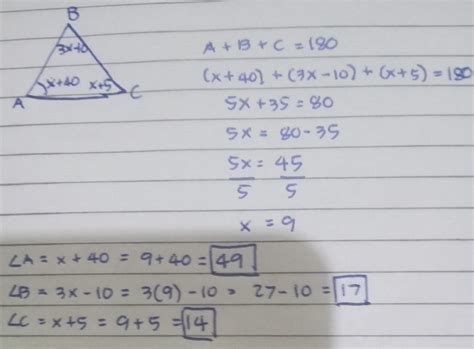 B
3x-10
x+40 x+5
A C
A + B + C = 180
(x+40) + (3x-10) + (x+5) = 180
5x + 35 = 80
5x = 80-35
5x = 45
5 5
x = 9
∠A = x + 40 = 9+40 = 49
∠B = 3x-10 = 3(9)-10 = 27-10 = 17
∠C = x+5 = 9+5 = 14